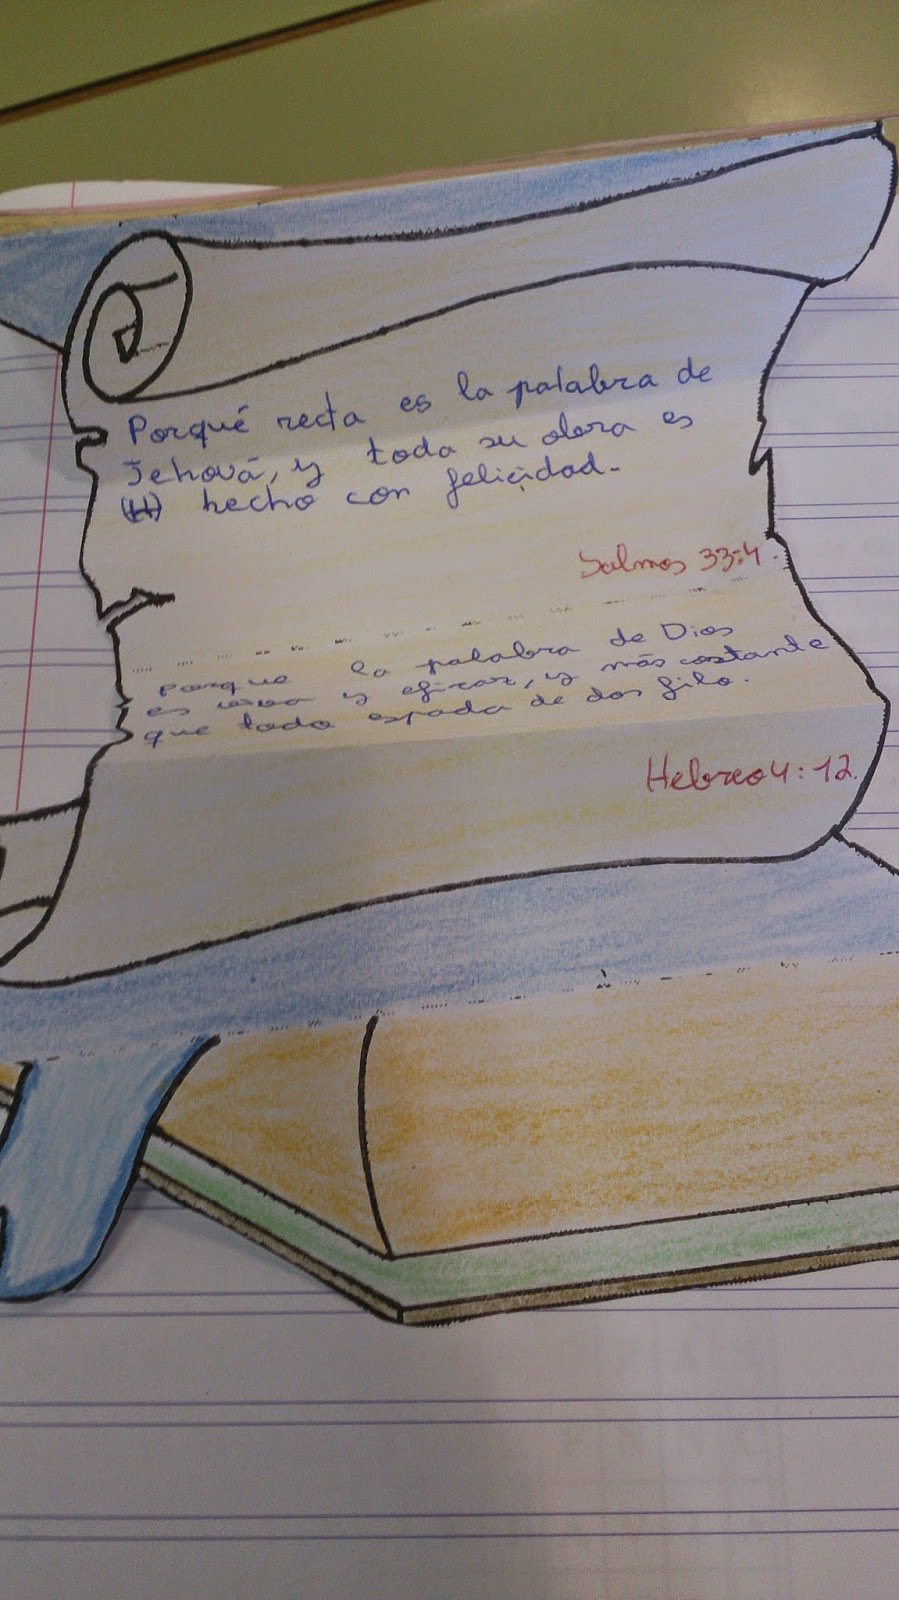 Porqué recta es la palabra de
Jehová, y toda su obra es
(H) hecho con felicidad.
Salmos 33:4.
porque la palabra de Dios
es viva y eficaz, y más costante
que toda espada de dos filo.
Hebreo 4:12.